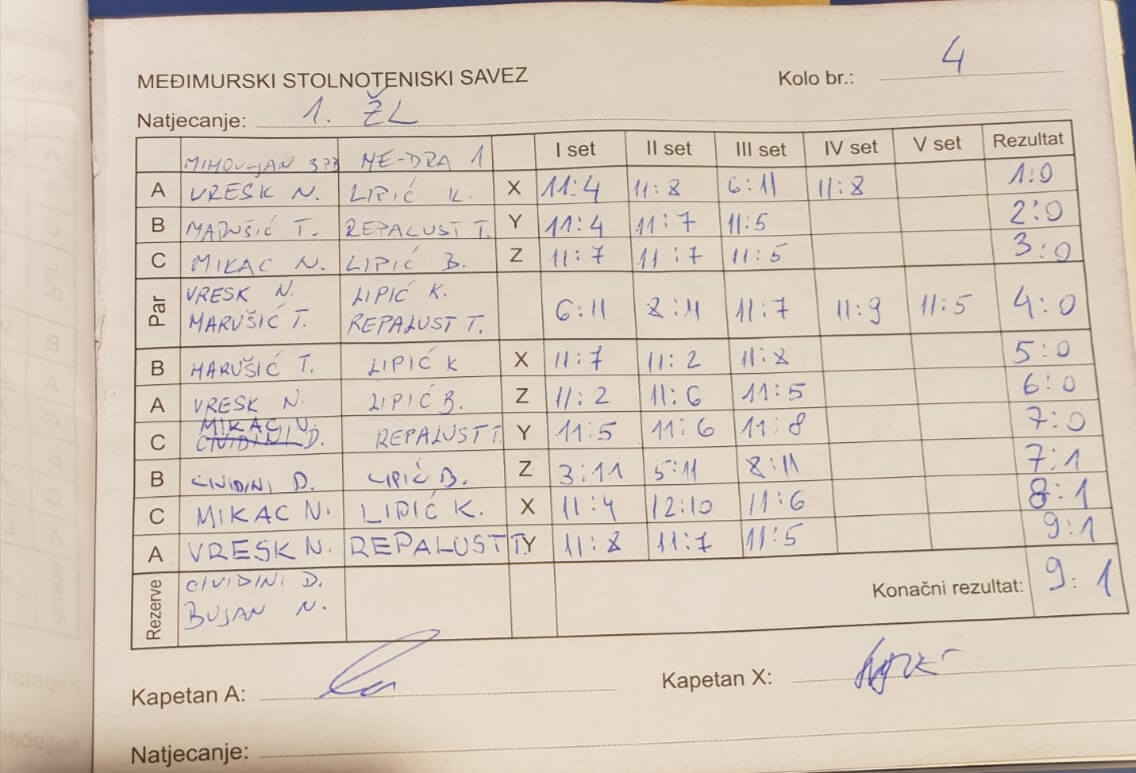 MEĐIMURSKI STOLNOTENISKI SAVEZ
Kolo br.: 4
Natjecanje: 1. ŽL
MIHOVLJAN ME-DRA 1 I set II set III set IV set V set Rezultat
A VRESK N. LIPIĆ K. X 11:4 11:8 6:11 11:8 1:0
B MARUŠIĆ T. REPALUST T. Y 11:4 11:7 11:5 2:0
C MIKAC N. LIPIĆ B. Z 11:7 11:7 11:5 3:0
Par VRESK N. LIPIĆ K. 6:11 8:11 11:7 11:9 11:5 4:0
MARUŠIĆ T. REPALUST T.
B MARUŠIĆ T. LIPIĆ K X 11:7 11:2 11:8 5:0
A VRESK N. LIPIĆ B. Z 11:2 11:6 11:5 6:0
MIKAC N.
C CIVIDINI D. REPALUST T. Y 11:5 11:6 11:8 7:0
B CIVIDINI D. LIPIĆ B. Z 3:11 5:11 8:11 7:1
C MIKAC N. LIPIĆ K. X 11:4 12:10 11:6 8:1
A VRESK N. REPALUST T Y 11:8 11:7 11:5 9:1
Rezerve CIVIDINI D.
BUJAN N.
Konačni rezultat: 9:1
Kapetan A:
Kapetan X:
Natjecanje: